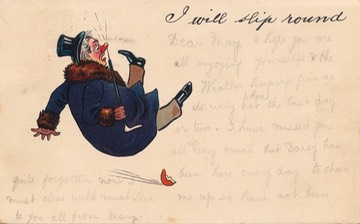 I will slip round
Dear May I hope you are
all enjoying yourselves & the
Weather keeping fine as
its very hot the last day
or two. I have missed you
all very much but Daisy has
quite forgotten now I been here every day to
must close with much love me up so have not been
to you all from May